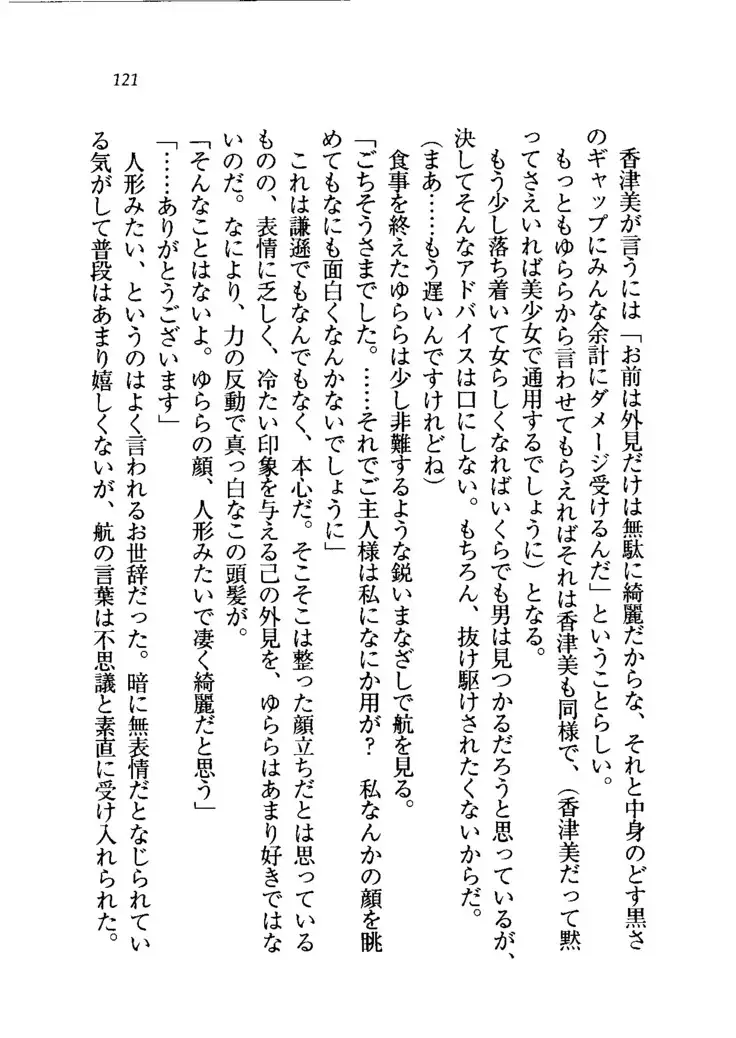 121
香津美が言うには「お前は外見だけは無駄に綺麗だからな、それと中身のどす黒さ
のギャップにみんな余計にダメージ受けるんだ」ということらしい。
もっともゆららから言わせてもらえればそれは香津美も同様で、（香津美だって黙
ってさえいれば美少女で通用するでしょうに）となる。
もう少し落ち着いて女らしくなればいくらでも男は見つかるだろうと思っているが、
決してそんなアドバイスは口にしない。もちろん、抜け駆けされたくないからだ。
（まあ……もう遅いんですけれどね）
食事を終えたゆららは少し非難するような鋭いまなざしで航を見る。
「ごちそうさまでした。……それでご主人様は私になにか用が？　私なんかの顔を眺
めてもなにも面白くなんかないでしょうに」
これは謙遜でもなんでもなく、本心だ。そこそこは整った顔立ちだとは思っている
ものの、表情に乏しく、冷たい印象を与える己の外見を、ゆららはあまり好きではな
いのだ。なにより、力の反動で真っ白なこの頭髪が。
「そんなことはないよ。ゆららの顔、人形みたいで凄く綺麗だと思う」
「……ありがとうございます」
人形みたい、というのはよく言われるお世辞だった。暗に無表情だとなじられてい
る気がして普段はあまり嬉しくないが、航の言葉は不思議と素直に受け入れられた。